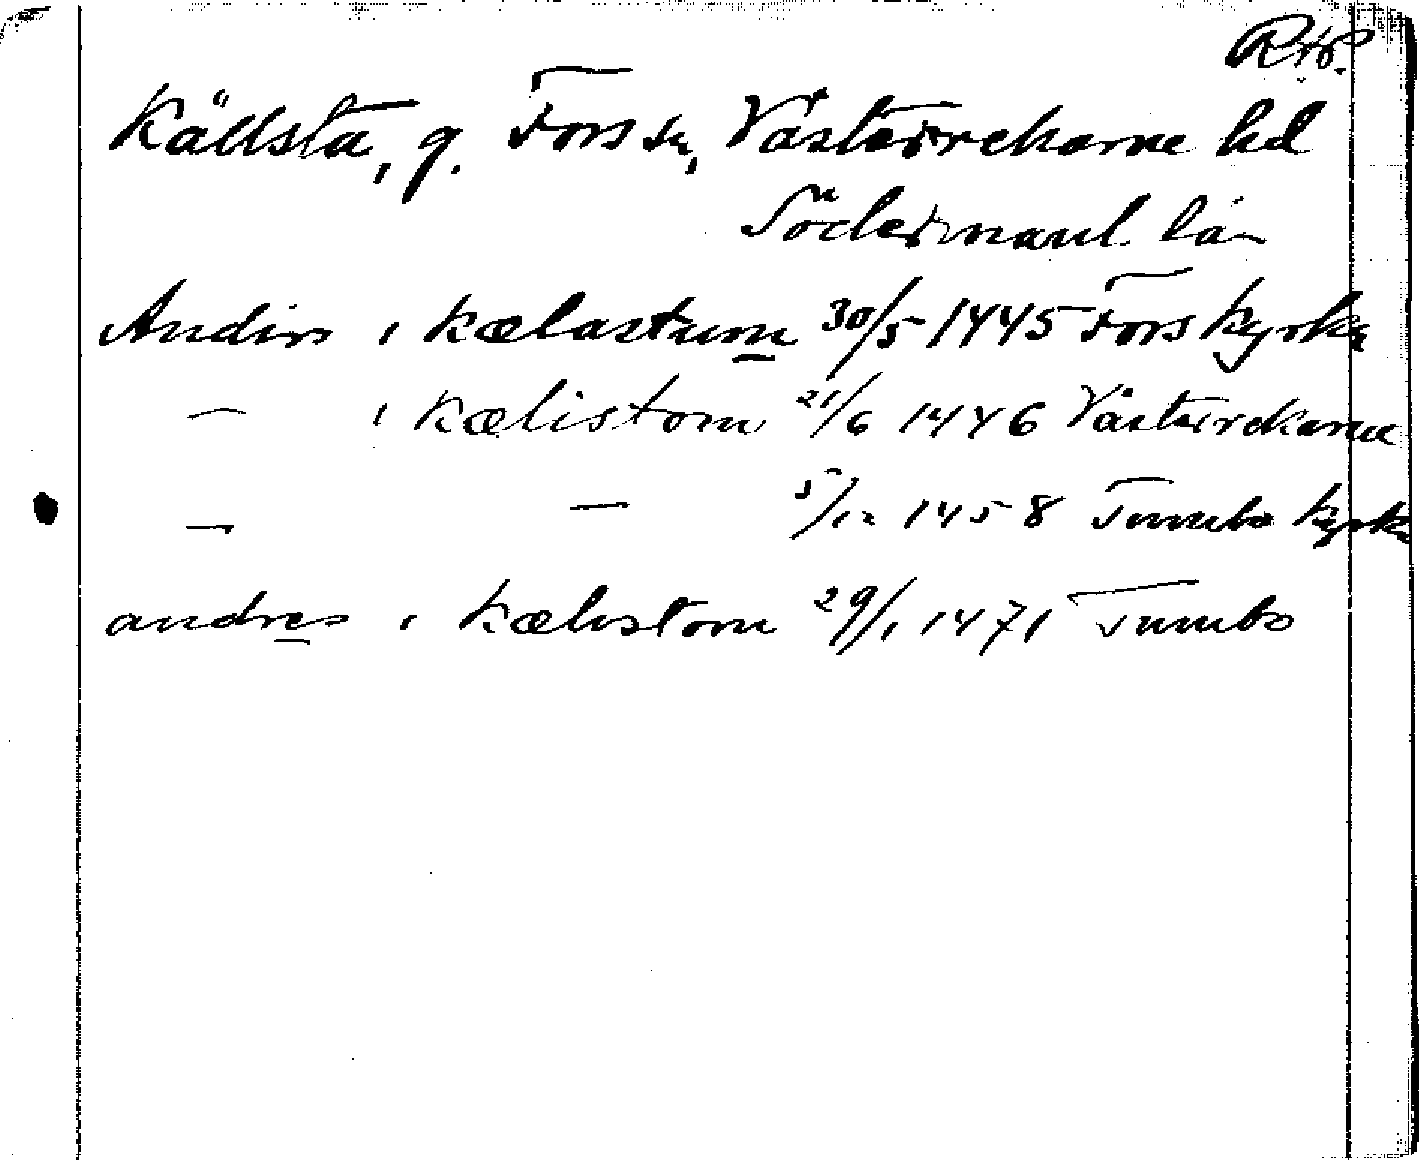 Källsta, g. Fors sn, Västerrekarne hd
Södermanl. län
Andirs i kælastum 30/5 1445 Fors kyrka
— i Kælistom 21/6 1446 Västerrekarne
— — 5/12 1458 Tumbo kyrka
andres i kælistom 29/1 1471 Tumbo